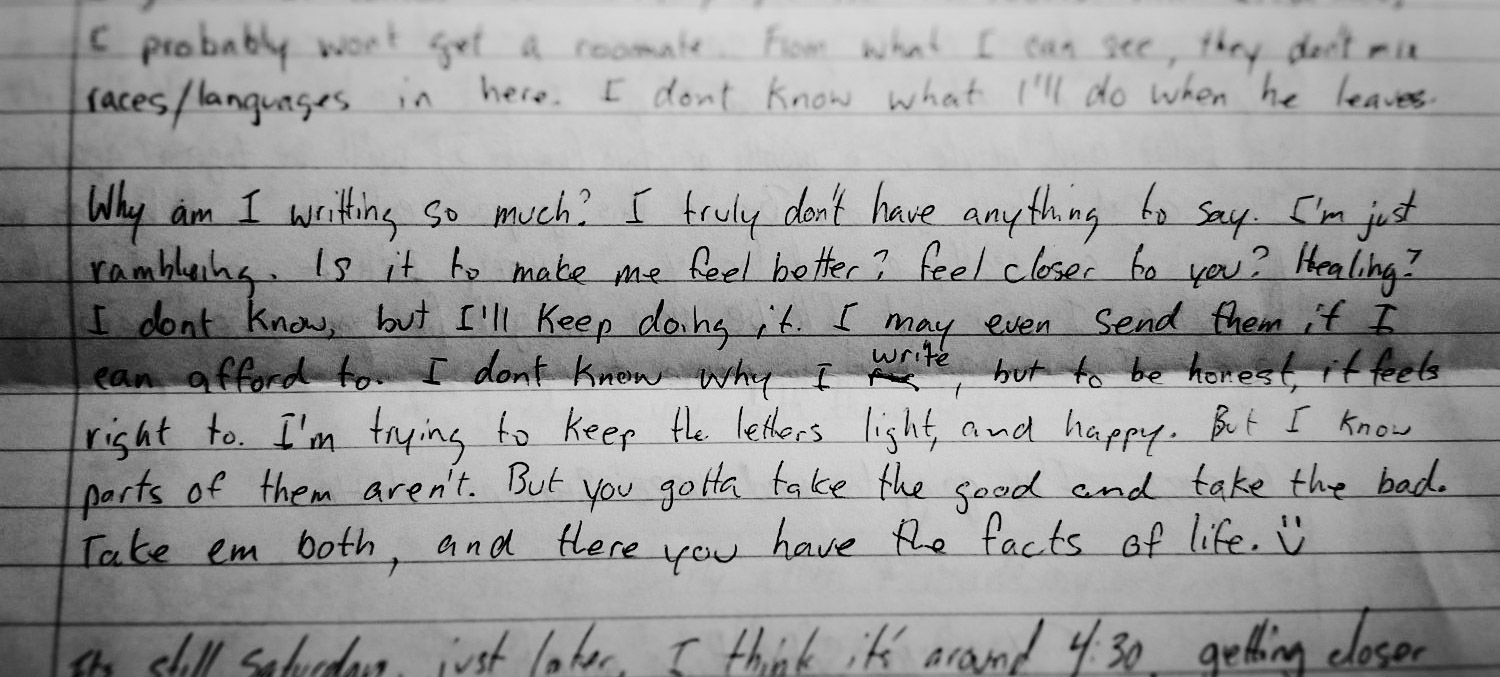 I probably wont get a roomate. From what I can see, they don't mix
races/languages in here. I dont know what I'll do when he leaves.
Why am I writting so much? I truly don't have anything to say. I'm just
rambling. Is it to make me feel better? feel closer to you? Healing?
I dont know, but I'll keep doing it. I may even send them if I
can afford to. I dont know why I write, but to be honest, it feels
right to. I'm trying to keep the letters light, and happy. But I know
parts of them aren't. But you gotta take the good and take the bad.
Take em both, and there you have the facts of life. Ü
Its still Saturday, just later. I think it's around 4:30, getting closer